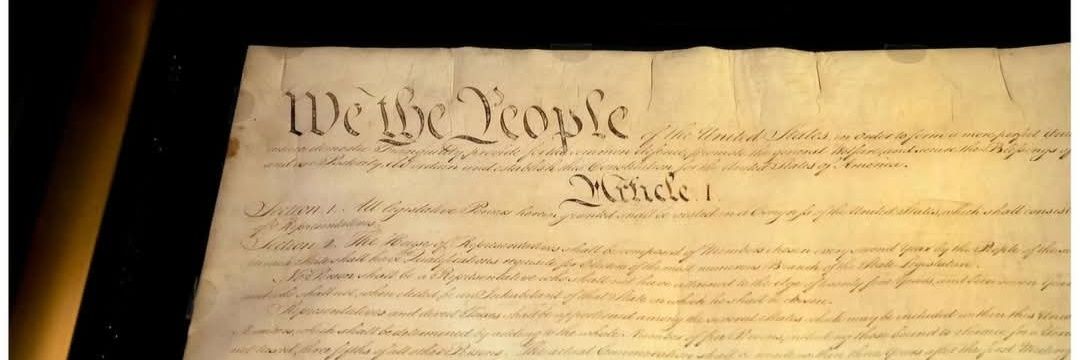 We the People of the United States, in Order to form a more perfect
insure domestic Tranquility, provide for the common defence, promote the general Welfare, and secure the Blessings of
and our Posterity, do ordain and establish this Constitution for the United States of America.
Article. I.
Section. 1. All legislative Powers herein granted shall be vested in a Congress of the United States, which shall consist
of Representatives.
Section. 2. The House of Representatives shall be composed of Members chosen every second Year by the People of the
State shall have Qualifications requisite for Electors of the most numerous Branch of the State Legislature.
No Person shall be a Representative who shall not have attained to the Age of twenty five Years, and been seven Years
and who shall not, when elected, be an Inhabitant of that State in which he shall be chosen.
Representatives and direct Taxes shall be apportioned among the several States which may be included within this
Numbers, which shall be determined by adding to the whole Number of free Persons, including those bound to Service for a
not taxed, three fifths of all other Persons. The actual Enumeration shall be made within three Years after the first Meeting